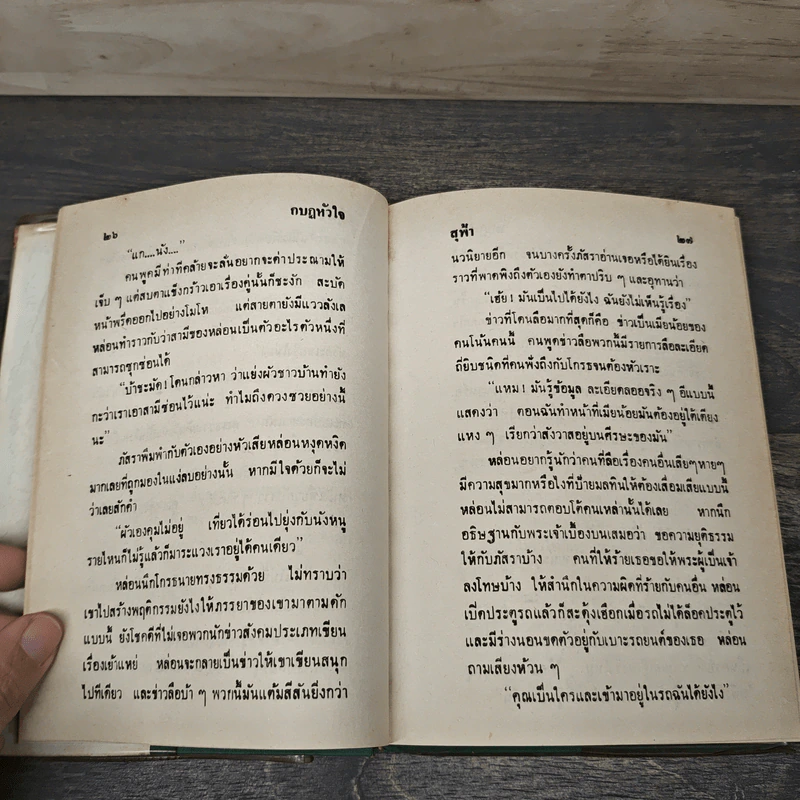 ๒๖
กบฏหัวใจ
“แก....นัง....”
คนพูดมีท่าทีคล้ายจะลั่นอยากจะด่าประณามให้
เจ็บ ๆ แต่สบตาแข็งกร้าวเอาเรื่องคู่นั้นก็ชะงัก สะบัด
หน้าพรืดออกไปอย่างโมโห แต่สายตายังมีแววลังเล
หล่อนทำราวกับว่าสามีของหล่อนเป็นตัวอะไรตัวหนึ่งที่
สามารถซุกซ่อนได้
“บ้าชะมัด! โดนกล่าวหา ว่าแย่งผัวชาวบ้านทำยัง
กะว่าเราเอาสามีซ่อนไว้แน่ะ ทำไมถึงดวงซวยอย่างนี้
นะ”
ภัสราพึมพำกับตัวเองอย่างหัวเสียหล่อนหงุดหงิด
มากเลยที่ถูกมองในแง่ลบอย่างนั้น หากมีใจด้วยก็จะไม่
ว่าเลยสักคำ
“ผัวเองคุมไม่อยู่ เที่ยวได้ร่อนไปยุ่งกับนังหนู
รายไหนก็ไม่รู้แล้วก็มาระแวงเราอยู่ได้คนเดียว”
หล่อนนึกโกรธนายทรงธรรมด้วย ไม่ทราบว่า
เขาไปสร้างพฤติกรรมยังไงให้ภรรยาของเขามาตามดัก
แบบนี้ ยังโชคดีที่ไม่เจอพวกนักข่าวสังคมประเภทเขียน
เรื่องเย้าแหย่ หล่อนจะกลายเป็นข่าวให้เขาเขียนสนุก
ไปทีเดียว และข่าวลือบ้า ๆ พวกนี้มันแต้มสีสันยิ่งกว่า
สุฟ้า
๒๗
นวนิยายอีก จนบางครั้งภัสราอ่านเจอหรือได้ยินเรื่อง
ราวที่พาดพิงถึงตัวเองยังทำตาปริบ ๆ และอุทานว่า
“เฮ้ย! มันเป็นไปได้ยังไง ฉันยังไม่เห็นรู้เรื่อง”
ข่าวที่โดนลือมากที่สุดก็คือ ข่าวเป็นเมียน้อยของ
คนโน้นคนนี้ คนพูดข่าวลือพวกนี้มีรายการลือละเอียด
ถี่ยิบชนิดที่คนฟังถึงกับโกรธจนต้องหัวเราะ
“แหม! มันรู้ข้อมูล ละเอียดลออจริง ๆ อีแบบนี้
แสดงว่า ตอนฉันทำหน้าที่เมียน้อยมันต้องอยู่ใต้เตียง
แหง ๆ เรียกว่าสังวาสอยู่บนศีรษะของมัน”
หล่อนอยากรู้นักว่าคนที่ลือเรื่องคนอื่นเสียๆหายๆ
มีความสุขมากหรือไงที่ป้ายมลทินให้ต้องเสื่อมเสียแบบนี้
หล่อนไม่สามารถตอบโต้คนเหล่านั้นได้เลย หากนึก
อธิษฐานกับพระเจ้าเบื้องบนเสมอว่า ขอความยุติธรรม
ให้กับภัสราบ้าง คนที่ให้ร้ายเธอขอให้พระผู้เป็นเจ้า
ลงโทษบ้าง ให้สำนึกในความผิดที่ร้ายกับคนอื่น หล่อน
เปิดประตูรถแล้วก็สะดุ้งเฮือกเมื่อรถไม่ได้ล็อคประตูไว้
และมีร่างนอนขดตัวอยู่กับเบาะรถยนต์ของเธอ หล่อน
ถามเสียงห้วน ๆ
“คุณเป็นใครและเข้ามาอยู่ในรถฉันได้ยังไง”